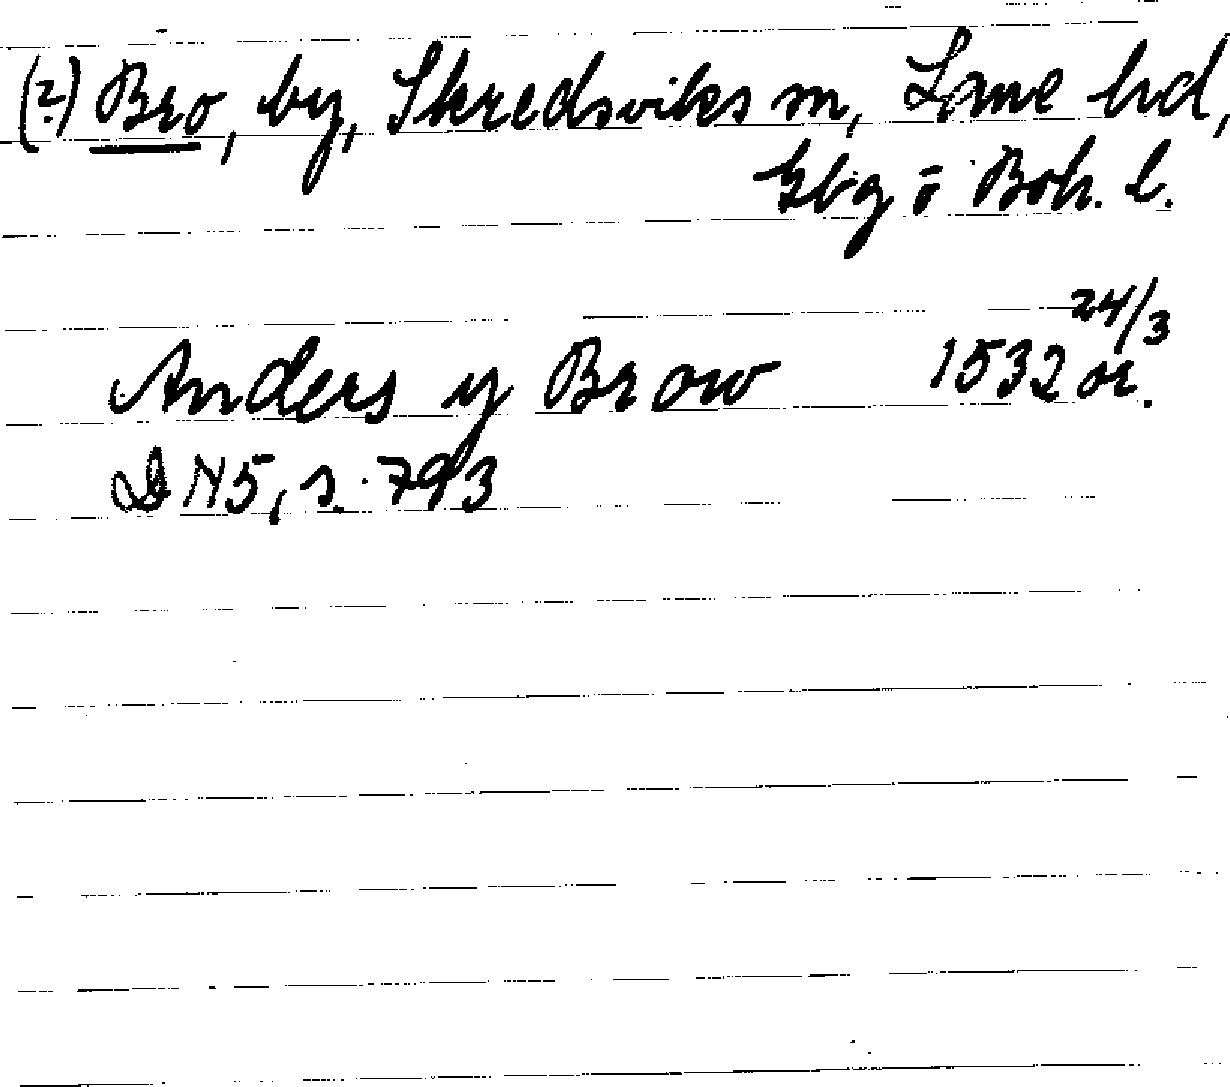 (?) Bro, by, Skredsviks sn, Lane hd,
Gbg o Boh. l.
Anders y Brow 1532 24/3 or.
DN5, s. 793